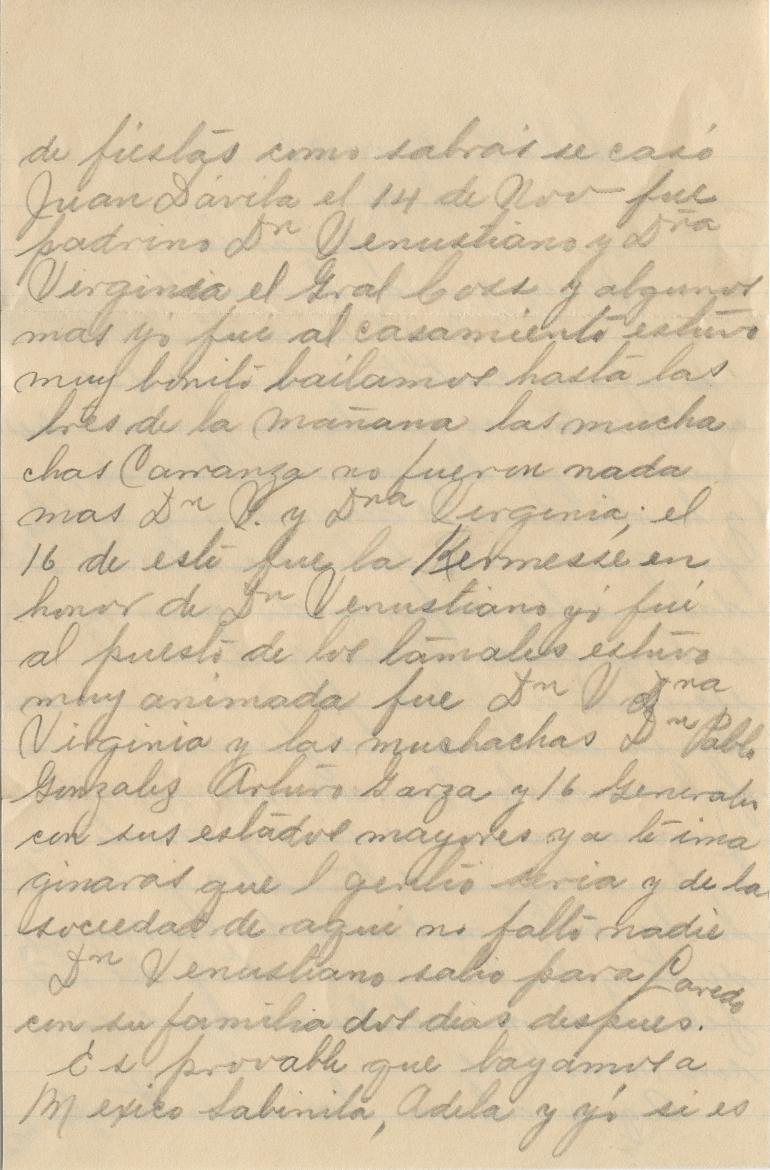 de fiestas como sabras se casó
Juan Dávila el 14 de Nov fue
padrino Dn Venustiano y Dña
Virginia el Gral Coss y algunos
mas yó fui al casamiento estuvo
muy bonito bailamos hasta las
tres de la mañana las mucha
chas Carranza no fueron nada
mas Dn V. y Dna Virginia; el
16 de este fue la Kermesse en
honor de Dn Venustiano yó fuí
al puesto de los tamales estuvo
muy animada fue Dn V Dna
Virginia y las muchachas Dn Pablo
Gonzalez Arturo Garza y 16 Generales
con sus estados mayores ya te ima
ginaras que l gentio seria y de la
sociedad de aqui no faltó nadie
Dn Venustiano salio para Laredo
con su familia dos dias despues.
Es provable que bayamos a
Mexico Sabinita, Adela y yó si es